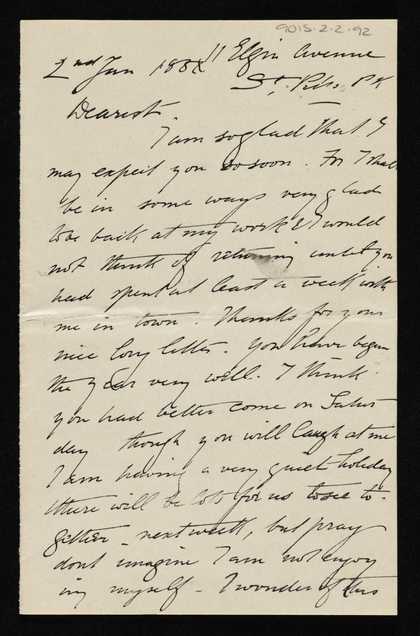 9015-2-2-92
11 Elgin Avenue
2nd Jan 188
St. Ptrs. Pk
Dearest.
I am so glad that I
may expect you so soon. For I shall
be in some ways very glad
to be back at my work & I would
not think of returning until you
had spent at least a week with
me in town. Thanks for your
nice long letter. You have begun
the year very well. I think
you had better come on Satur
day though you will laugh at me
I am having a very quiet holiday
there will be lots for us to see to-
gether - next week, but pray
dont imagine I am not enjoy
ing myself - I wonder if this